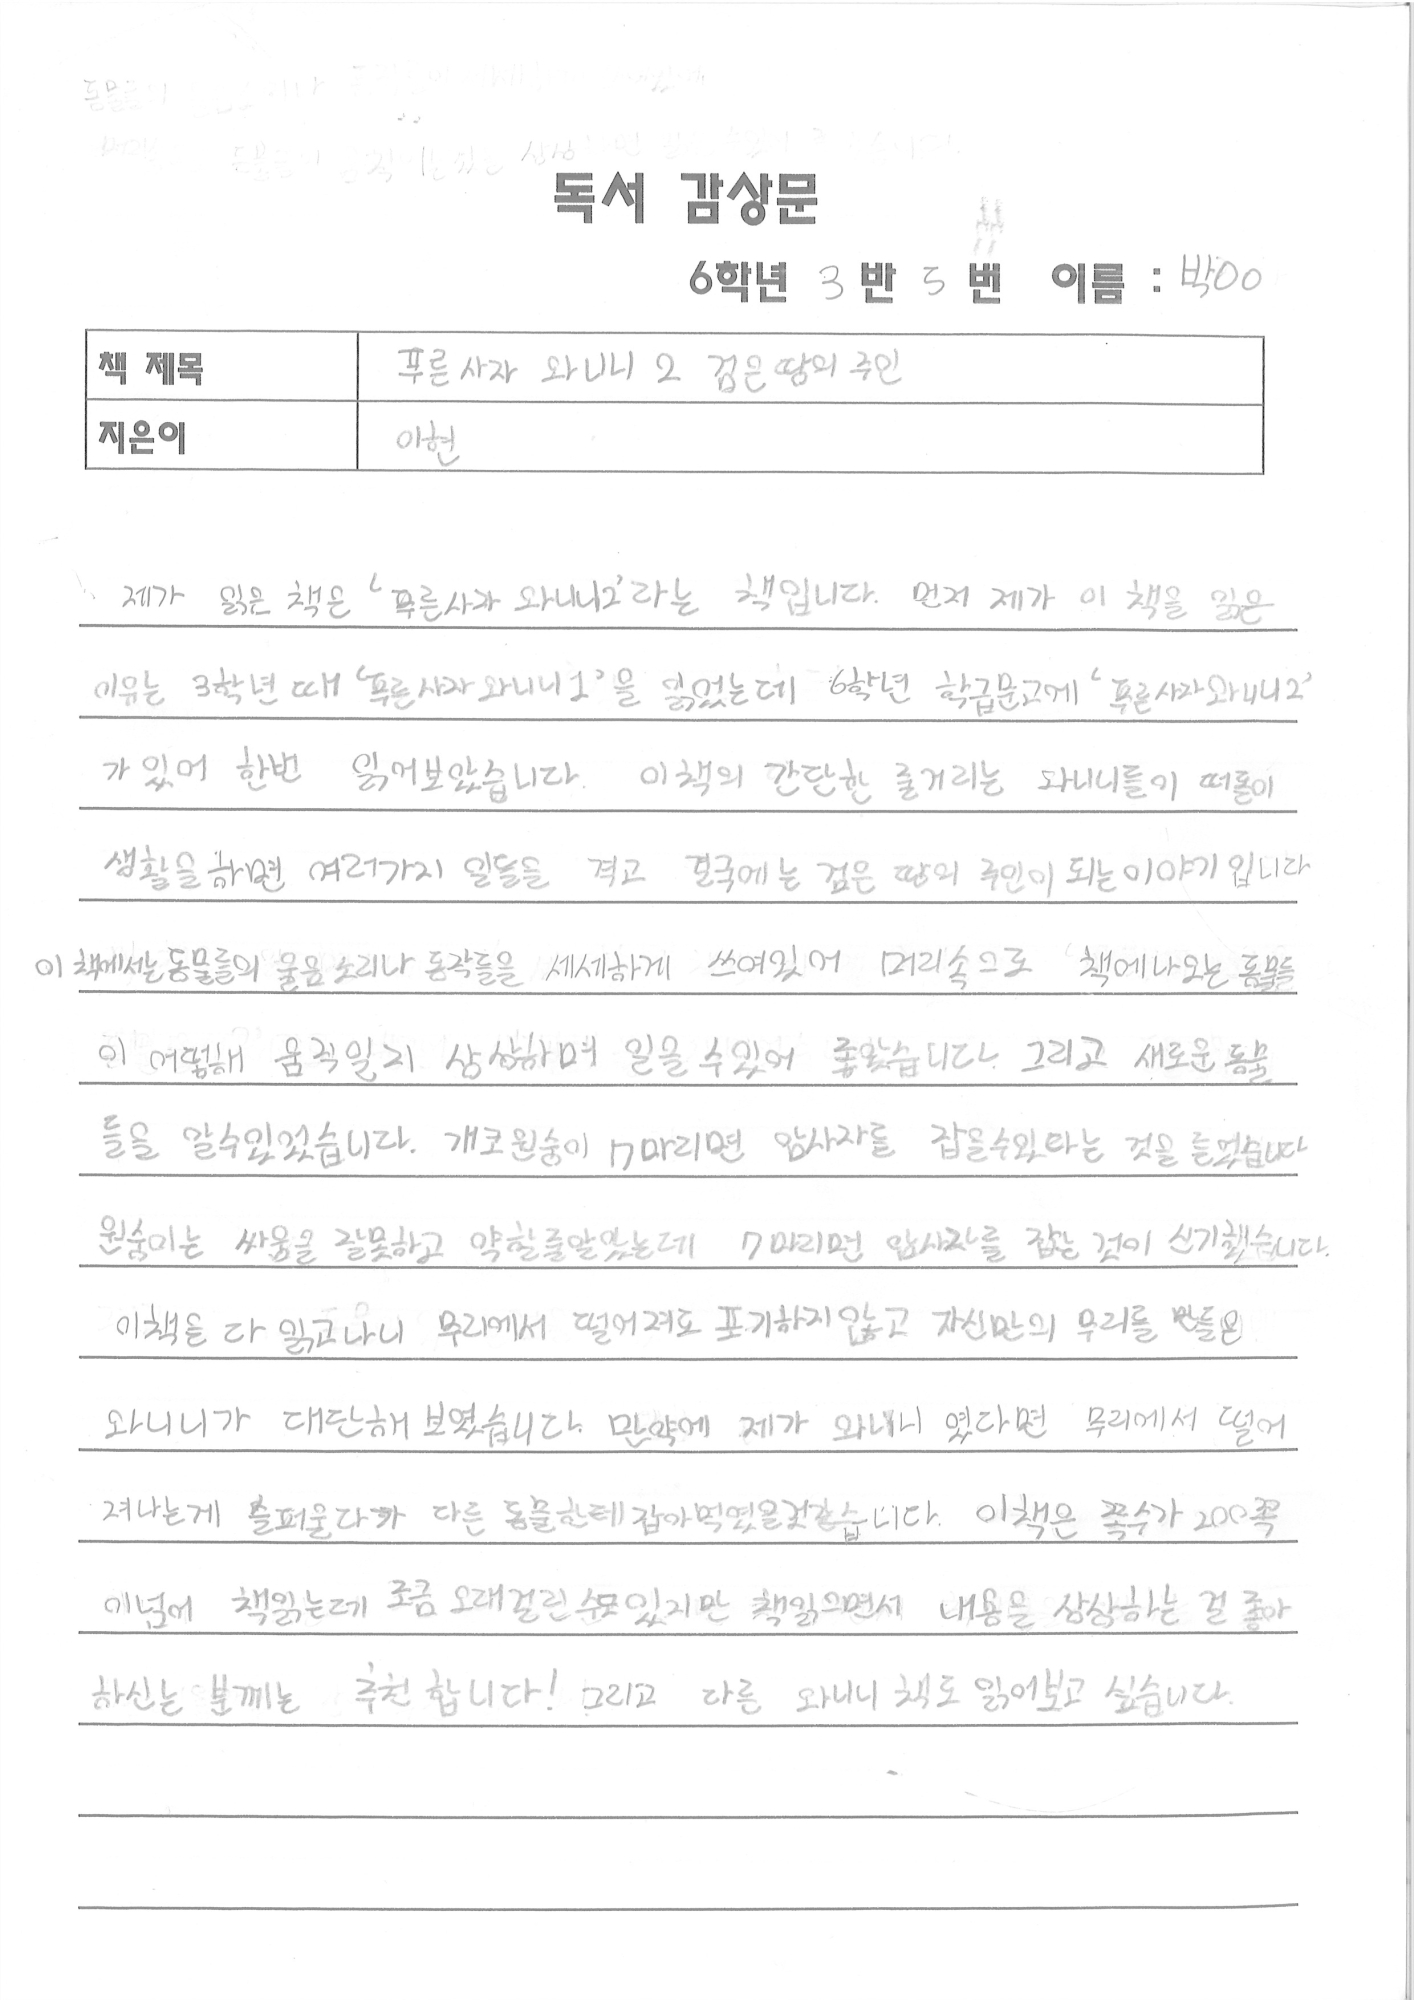 독서 감상문
6학년 3 반 5 번 이름 : 박OO
책 제목 푸른사자 와니니 2 검은땅의 주인
지은이 이현
제가 읽은 책은 '푸른사자 와니니2'라는 책입니다. 먼저 제가 이 책을 읽은
이유는 3학년 때 '푸른사자와니니1'을 읽었는데 6학년 학급문고에 '푸른사자와니니2'
가 있어 한번 읽어보았습니다. 이책의 간단한 줄거리는 와니니들이 떠돌이
생활을하면 여러가지 일들을 격고 결국에는 검은 땅의 주인이 되는이야기입니다
이 책에서는 동물들의 울음 소리나 동작들을 세세하게 쓰여있어 머리속으로 책에나오는 동물들
이 어떻해 움직일지 상상하며 읽을 수있어 좋았습니다. 그리고 새로운 동물
들을 알수있었습니다. 개코원숭이 7마리면 암사자를 잡을수있다는 것을 들었습니다
원숭이는 싸움을 잘못하고 약할줄알았는데 7마리면 암사자를 잡는 것이 신기했습니다.
이책을 다 읽고나니 무리에서 떨어져도 포기하지않고 자신만의 무리를 만들은
와니니가 대단해 보였습니다. 만약에 제가 와니니 였다면 무리에서 떨어
져나는게 슬퍼울다가 다른 동물한테잡아먹였을것같습니다. 이책은 쪽수가 200쪽
이넘어 책읽는데 조금 오래걸린수도있지만 책읽으면서 내용을 상상하는 걸 좋아
하신는 분께는 추천합니다! 그리고 다른 와니니 책도 읽어보고 싶습니다.